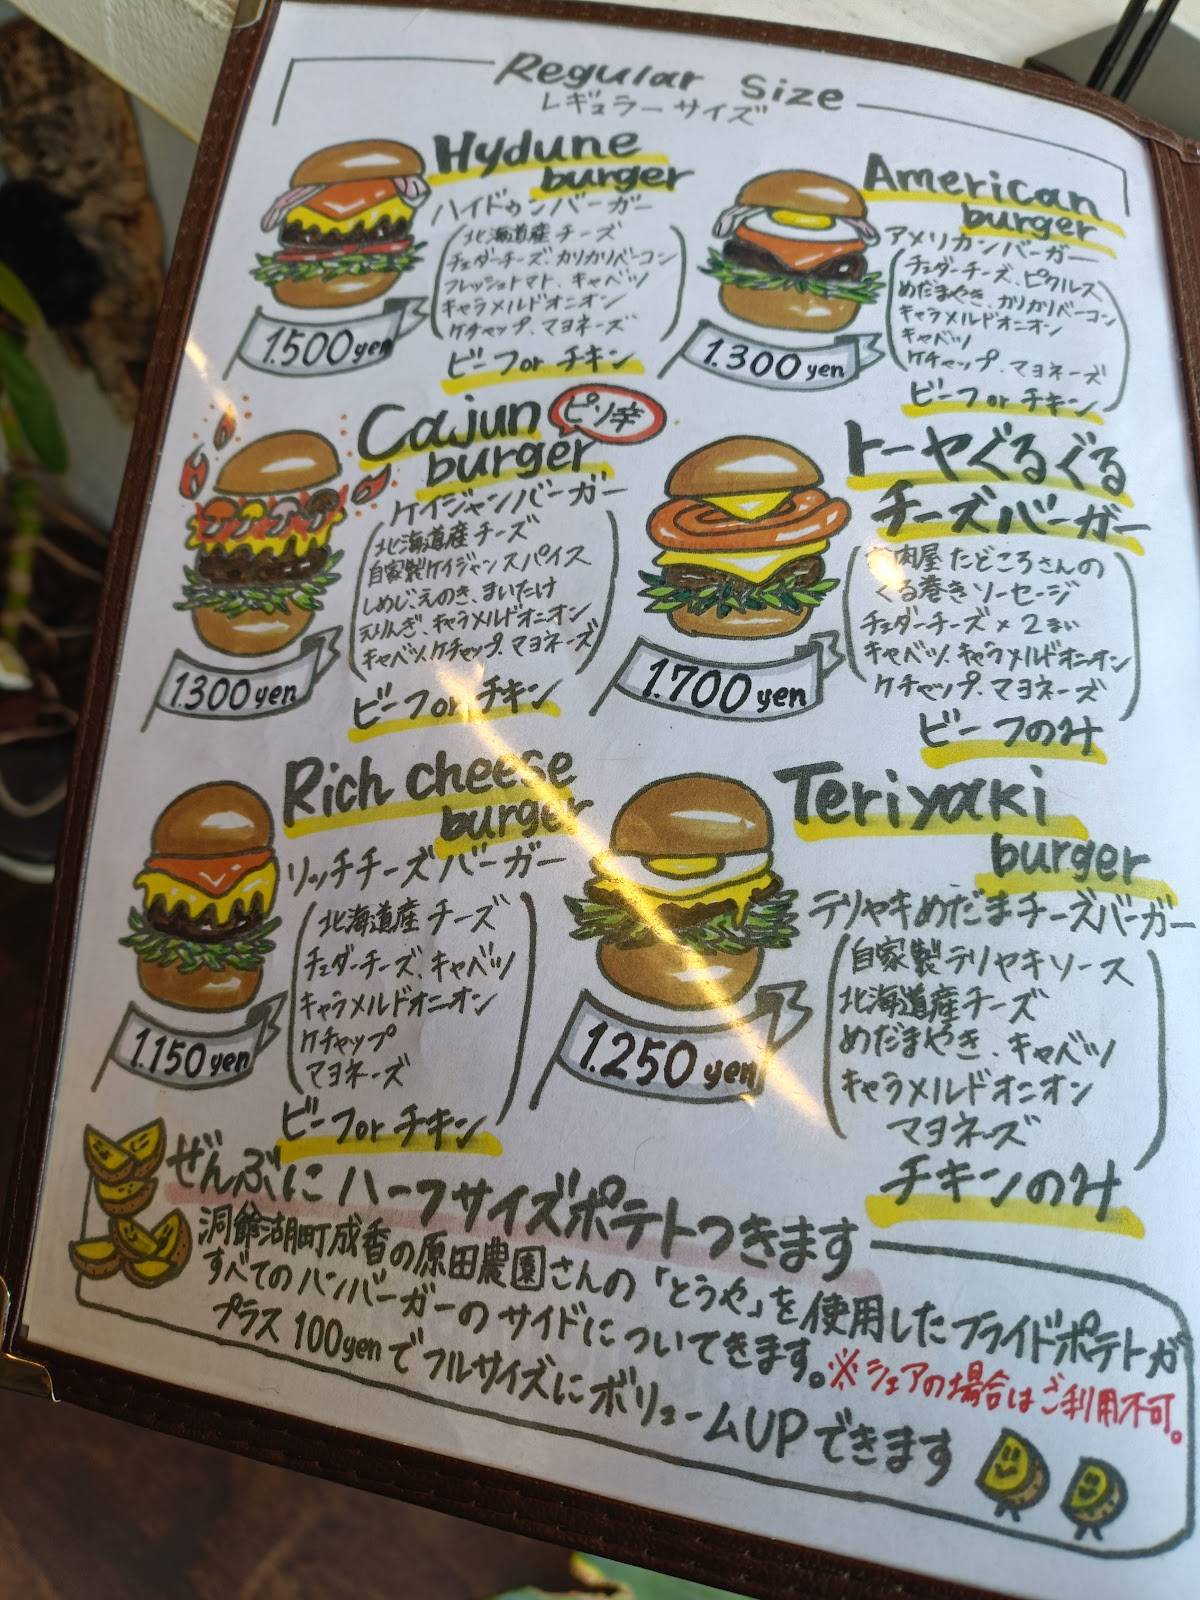 Regular Size
レギュラーサイズ
Hydune
burger
ハイドゥンバーガー
北海道産チーズ
チェダーチーズ、カリカリベーコン
フレッシュトマト、キャベツ
キャラメルドオニオン
ケチャップ、マヨネーズ
ビーフorチキン
1.500yen
American
burger
アメリカンバーガー
チェダーチーズ、ピクルス
めだまやき、カリカリベーコン
キャラメルドオニオン
キャベツ
ケチャップ、マヨネーズ
ビーフorチキン
1.300yen
Cajun
ピリ辛
burger
ケイジャンバーガー
北海道産チーズ
自家製ケイジャンスパイス
しめじ、えのき、まいたけ
えりんぎ、キャラメルドオニオン
キャベツ、ケチャップ、マヨネーズ
ビーフorチキン
1.300yen
トーヤぐるぐる
チーズバーガー
肉屋たどころさんの
ぐる巻きソーセージ
チェダーチーズ×2まい
キャベツ、キャラメルドオニオン
ケチャップ、マヨネーズ
ビーフのみ
1.700yen
Rich cheese
burger
リッチチーズバーガー
北海道産チーズ
チェダーチーズ、キャベツ
キャラメルドオニオン
ケチャップ
マヨネーズ
ビーフorチキン
1.150yen
Teriyaki
burger
テリヤキめだまチーズバーガー
自家製テリヤキソース
北海道産チーズ
めだまやき、キャベツ
キャラメルドオニオン
マヨネーズ
チキンのみ
1.250yen
ぜんぶにハーフサイズポテトつきます
洞爺湖町成香の原田農園さんの「とうや」を使用したフライドポテトが
すべてのハンバーガーのサイドについてきます。※シェアの場合はご利用不可。
プラス100yenでフルサイズにボリュームUPできます